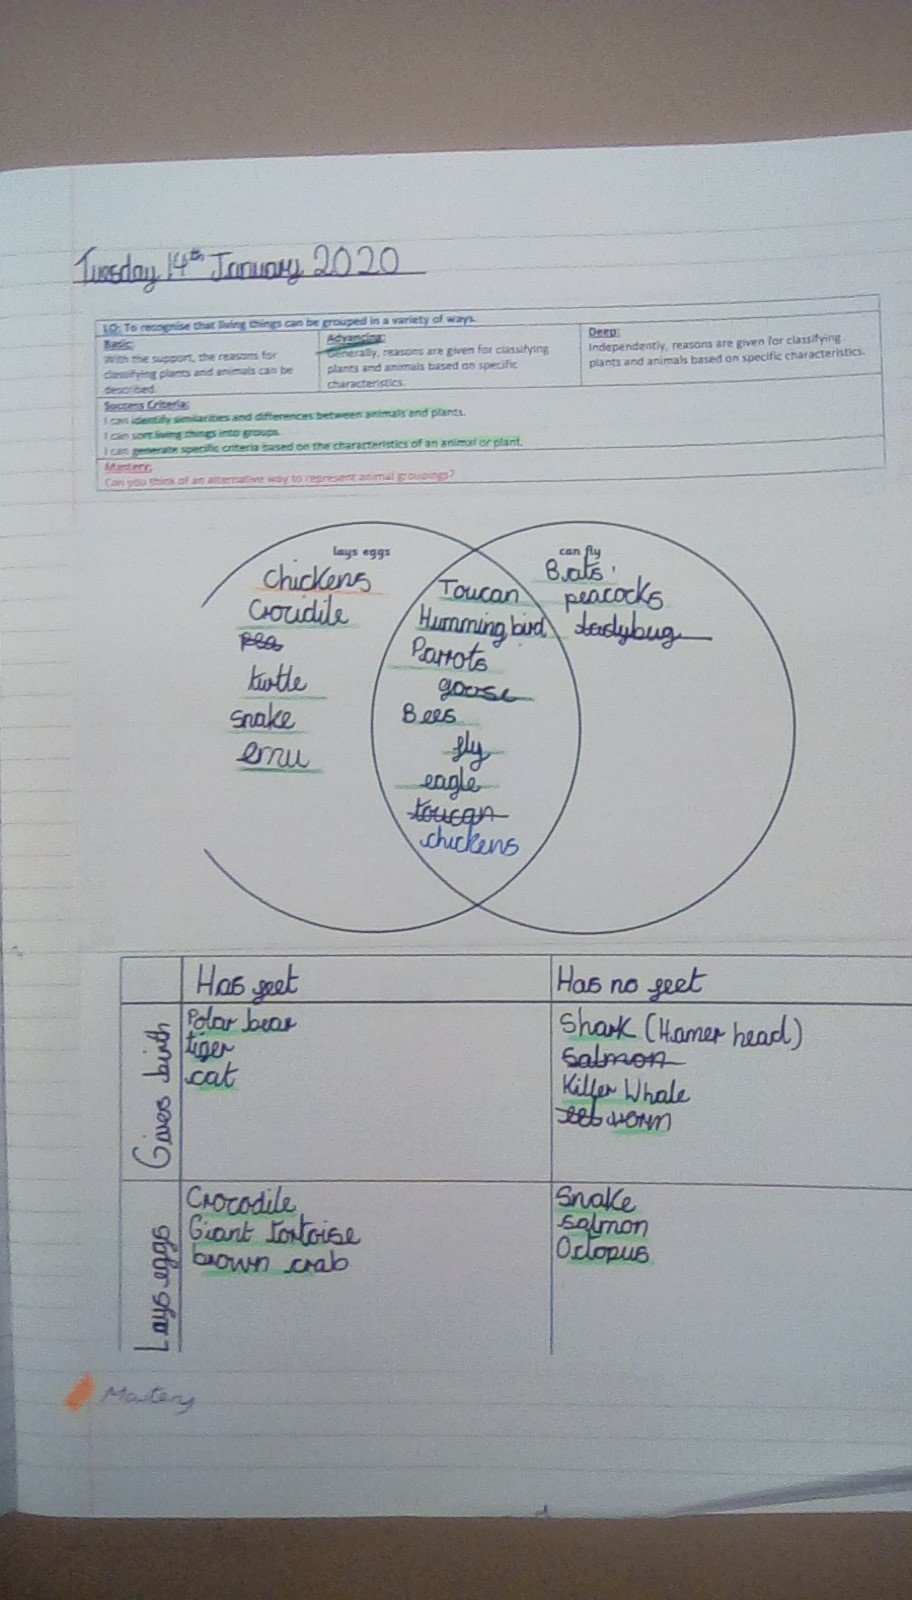 Tuesday 14th January 2020
LO: To recognise that living things can be grouped in a variety of ways.
Basic:
With the support, the reasons for
classifying plants and animals can be
described.
Advancing:
Generally, reasons are given for classifying
plants and animals based on specific
characteristics.
Deep:
Independently, reasons are given for classifying
plants and animals based on specific characteristics.
Success Criteria:
I can identify similarities and differences between animals and plants.
I can sort living things into groups.
I can generate specific criteria based on the characteristics of an animal or plant.
Mastery:
Can you think of an alternative way to represent animal groupings?
lays eggs
Chickens
Crocidile
pea
turtle
snake
emu
Toucan
Humming bird
Parrots
goose
Bees
fly
eagle
toucan
chickens
can fly
Bats
peacocks
ladybug
Has feet
Has no feet
Gives birth
Polar bear
tiger
cat
Shark (Hamer head)
Salmon
Killer Whale
eel worm
Lays eggs
Crocodile
Giant tortoise
brown crab
Snake
salmon
Octopus
Mastery